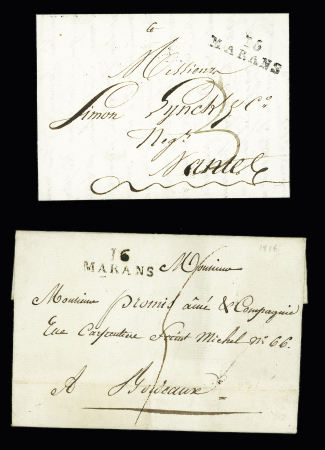 16
MARANS
Messieurs
Simon Lynch & Co
Negts
Nantes
16
MARANS
Monsieur
Monsieur promis aîné & Compagnie
Rue Carpenteire Saint Michel No 66.
A Bordeaux